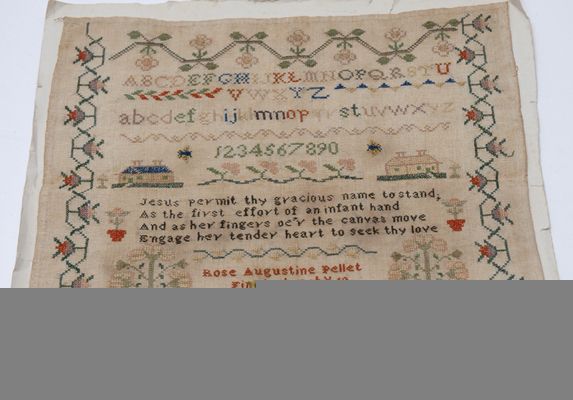 ABCDEFGHIJKLMNOPQRSTU
VWXYZ
abcdefghijklmnopqrstuvwxyz
1234567890
Jesus permit thy gracious name to stand,
As the first effort of an infant hand
And as her fingers oe'r the canvas move
Engage her tender heart to seek thy love
Rose Augustine Pellet